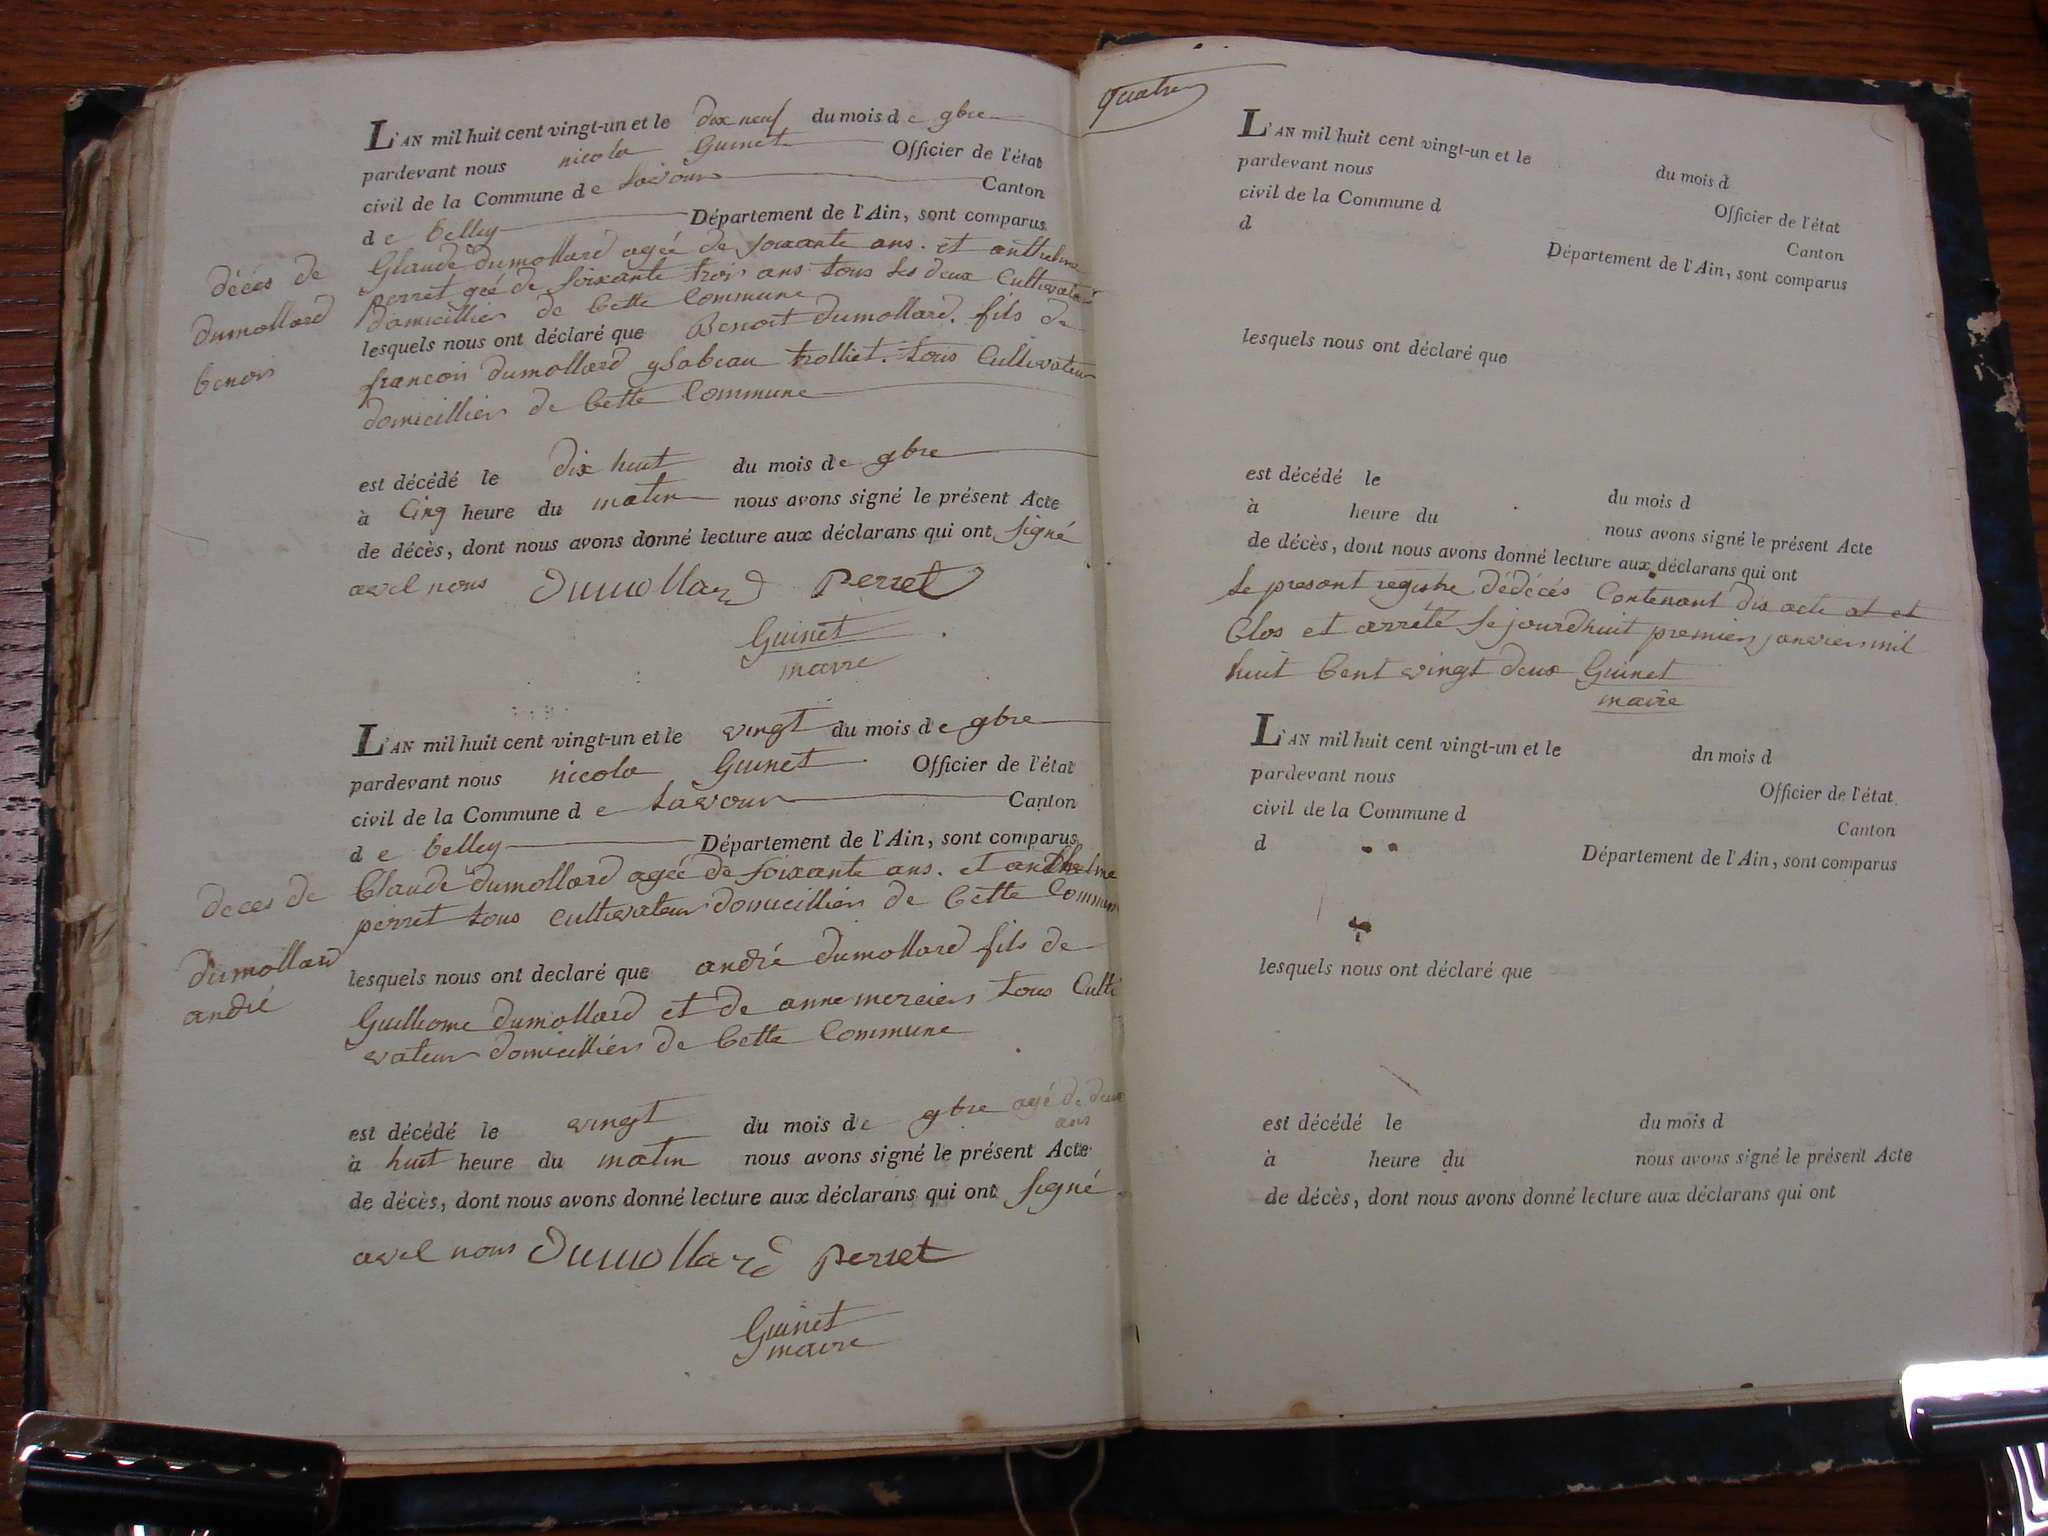 L'AN mil huit cent vingt-un et le dix neuf du mois de 9bre
pardevant nous nicola Guinet Officier de l'état
civil de la Commune de Lavour Canton
de belley Département de l'Ain, sont comparus
Glaude dumollard agée de soixante ans. et anthelme
perret gée de soixante trois ans tous les deux Cultivateur
domicilliers de Cette Commune
lesquels nous ont déclaré que Benoit dumollard. fils de
francois dumollard ysabeau trolliet. tous Cultivateur
domicilliers de Cette Commune
décés de
dumollard
benoi
est décédé le dix huit du mois de 9bre
à Cinq heure du matin nous avons signé le présent Acte
de décès, dont nous avons donné lecture aux déclarans qui ont signé
avec nous Dumollard perret
Guinet
maire
L'AN mil huit cent vingt-un et le vingt du mois de 9bre
pardevant nous nicola Guinet Officier de l'état
civil de la Commune de Lavour Canton
de belley Département de l'Ain, sont comparus
Claude dumollard agée de soixante ans. et anthelme
perret tous cultivateur domicilliers de Cette Commune
lesquels nous ont declaré que andré dumollard fils de
Guilliome dumollard et de anne merciers tous Culti
vateur domicilliers de Cette Commune
deces de
dumollard
andré
est décédé le vingt du mois de 9bre agé de deux
ans
à huit heure du matin nous avons signé le présent Acte
de décès, dont nous avons donné lecture aux déclarans qui ont signé
avec nous Dumollard perret
Guinet
maire
quatre
L'AN mil huit cent vingt-un et le du mois d
pardevant nous Officier de l'état
civil de la Commune d Canton
d Département de l'Ain, sont comparus
lesquels nous ont déclaré que
est décédé le du mois d
à heure du nous avons signé le présent Acte
de décès, dont nous avons donné lecture aux déclarans qui ont
le present registre dédécés Contenant dix acte at et
Clos et arrété le jourdhuit premiers janviers mil
huit Cent vingt deux Guinet
maire
L'AN mil huit cent vingt-un et le dn mois d
pardevant nous Officier de l'état
civil de la Commune d Canton
d Département de l'Ain, sont comparus
lesquels nous ont déclaré que
est décédé le du mois d
à heure du nous avons signé le présent Acte
de décès, dont nous avons donné lecture aux déclarans qui ont